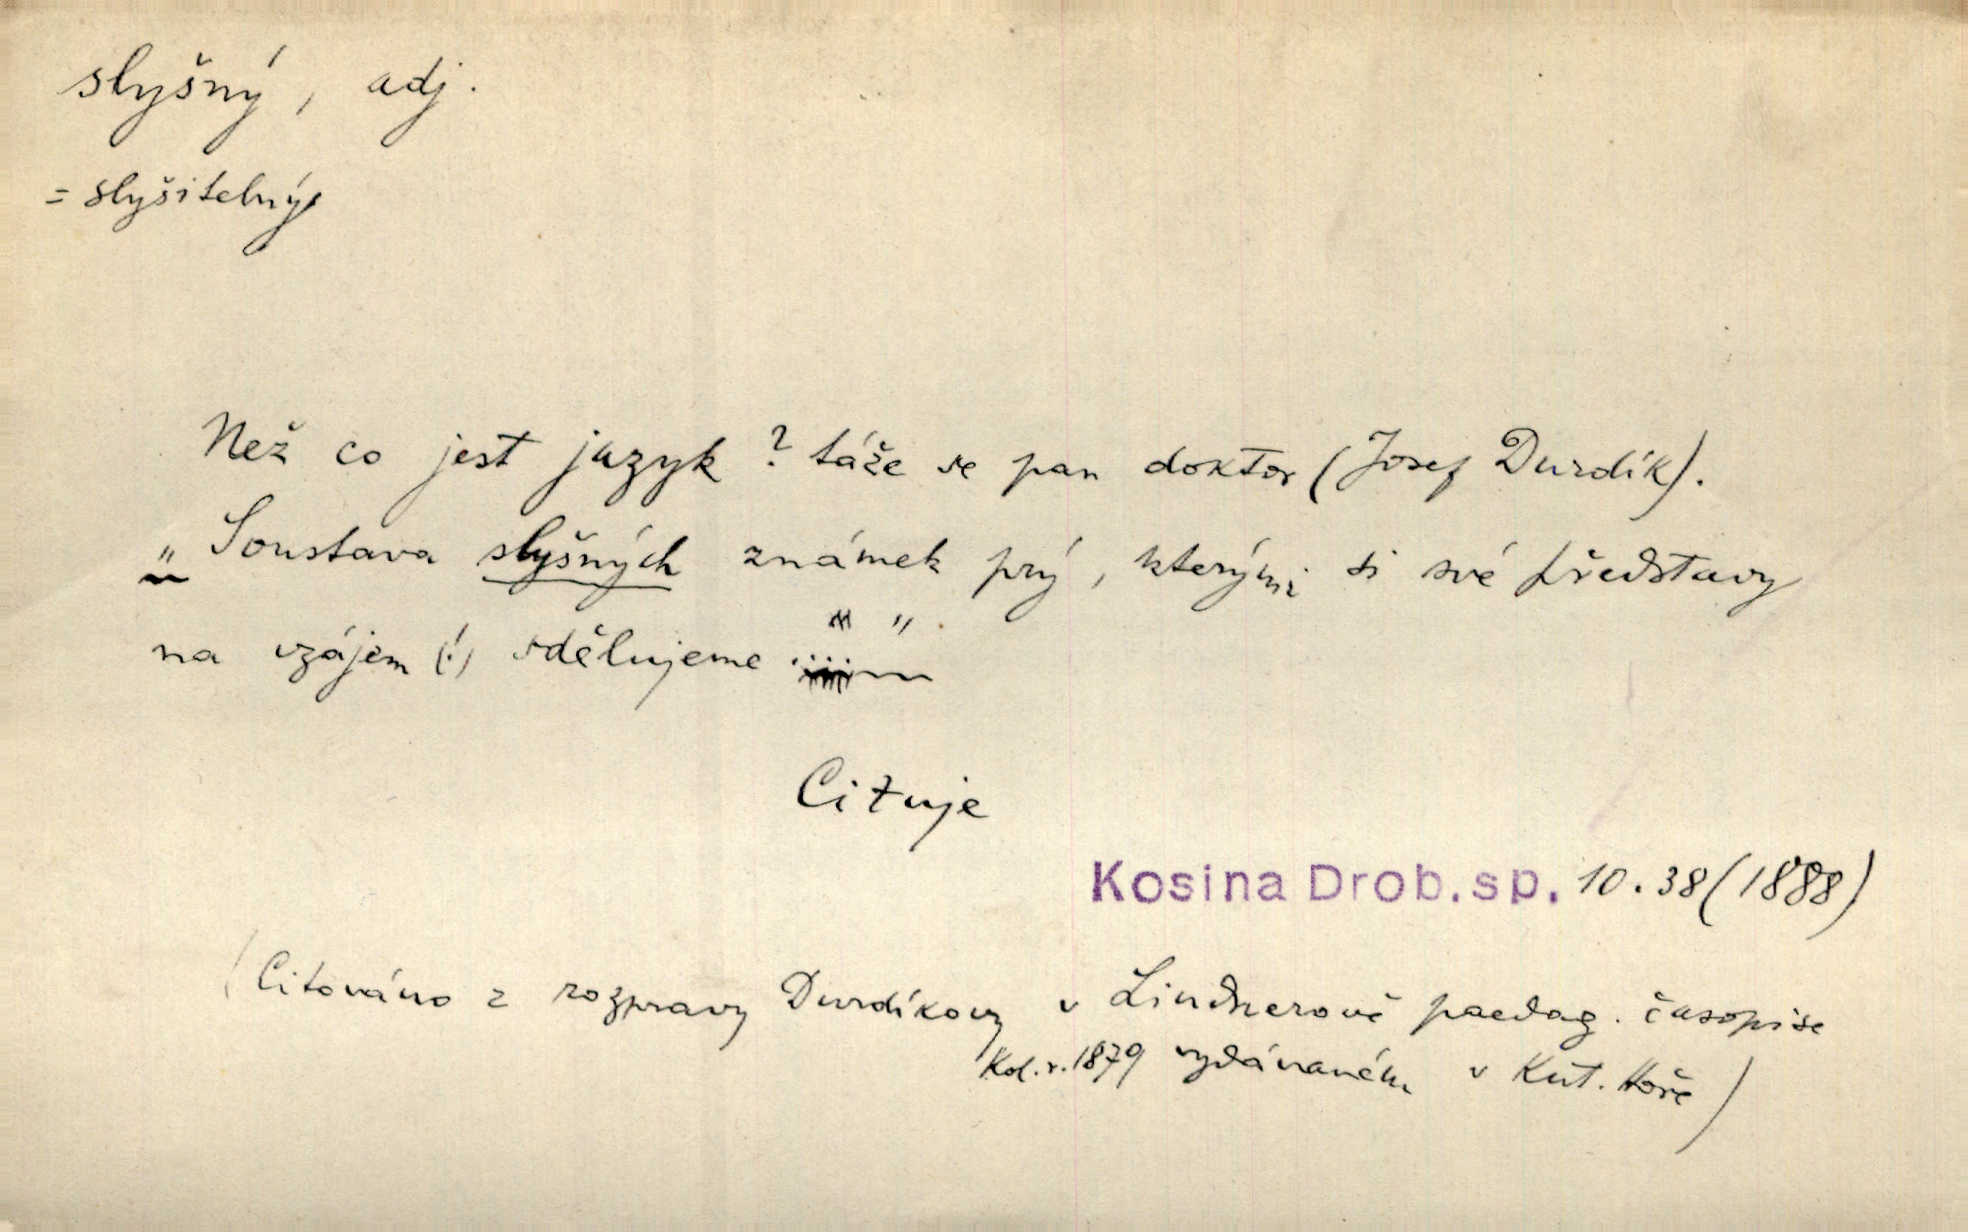 slyšný, adj.
= slyšitelný
Než co jest jazyk? táže se pan doktor (Josef Durdík).
„Soustava slyšných známek prý, kterými si své představy
na vzájem (!) sdělujeme ....."
Cituje
Kosina Drob. sp. 10.38 (1888)
(Citováno z rozpravy Durdíkovy v Lindnerově paedag. časopise
kol. r. 1879 vydávaném v Kut. Hoře)